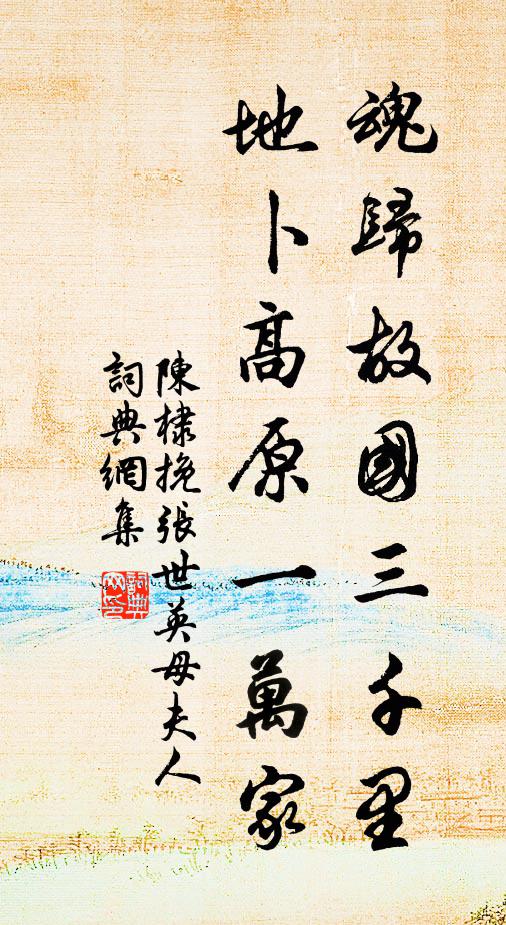 魂歸故國三千里
地卜高原一萬家
陳棣挽張世英母夫人
詞典網集